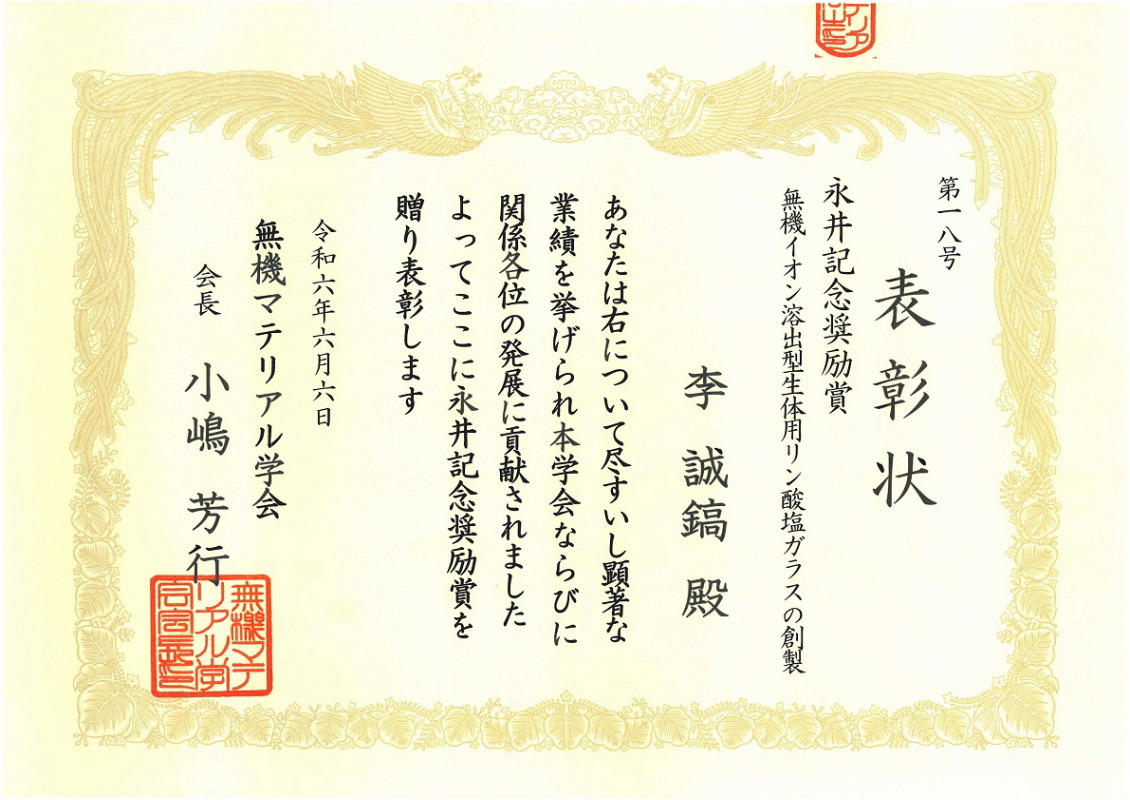 第一八号
表彰状
永井記念奨励賞
無機イオン溶出型生体用リン酸塩ガラスの創製
李 誠鎬 殿
あなたは右について尽すいし顕著な
業績を挙げられ本学会ならびに
関係各位の発展に貢献されました
よってここに永井記念奨励賞を
贈り表彰します
令和六年六月六日
無機マテリアル学会
会長 小嶋 芳行
無機マテ
リアル学
会会長印